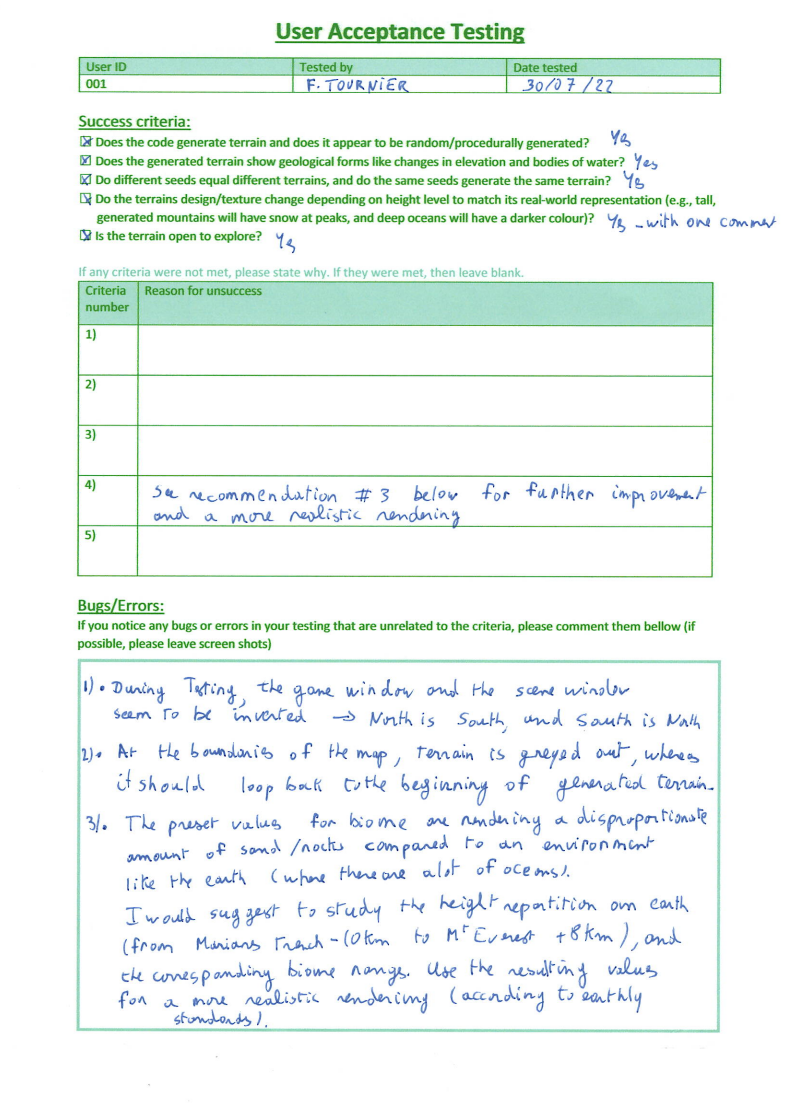 User Acceptance Testing
User ID Tested by Date tested
001 F. TOURNIER 30/07/22
Success criteria:
☒ Does the code generate terrain and does it appear to be random/procedurally generated? Yes
☒ Does the generated terrain show geological forms like changes in elevation and bodies of water? Yes
☒ Do different seeds equal different terrains, and do the same seeds generate the same terrain? Yes
☒ Do the terrains design/texture change depending on height level to match its real-world representation (e.g., tall,
generated mountains will have snow at peaks, and deep oceans will have a darker colour)? Yes - with one comment
☒ Is the terrain open to explore? Yes
If any criteria were not met, please state why. If they were met, then leave blank.
Criteria number Reason for unsuccess
1)
2)
3)
4) See recommendation # 3 below for further improvement
and a more realistic rendering
5)
Bugs/Errors:
If you notice any bugs or errors in your testing that are unrelated to the criteria, please comment them bellow (if
possible, please leave screen shots)
1). During Testing, the game window and the scene window
seem to be inverted → North is South, and South is North
2). At the boundaries of the map, terrain is greyed out, whereas
it should loop back to the beginning of generated terrain.
3/. The preset values for biome are rendering a disproportionate
amount of sand/rocks compared to an environment
like the earth (where there are a lot of oceans).
I would suggest to study the height repartition on earth
(from Marians Trench -10km to Mt Everest +8km), and
the corresponding biome range. Use the resulting values
for a more realistic rendering (according to earthly
standards).